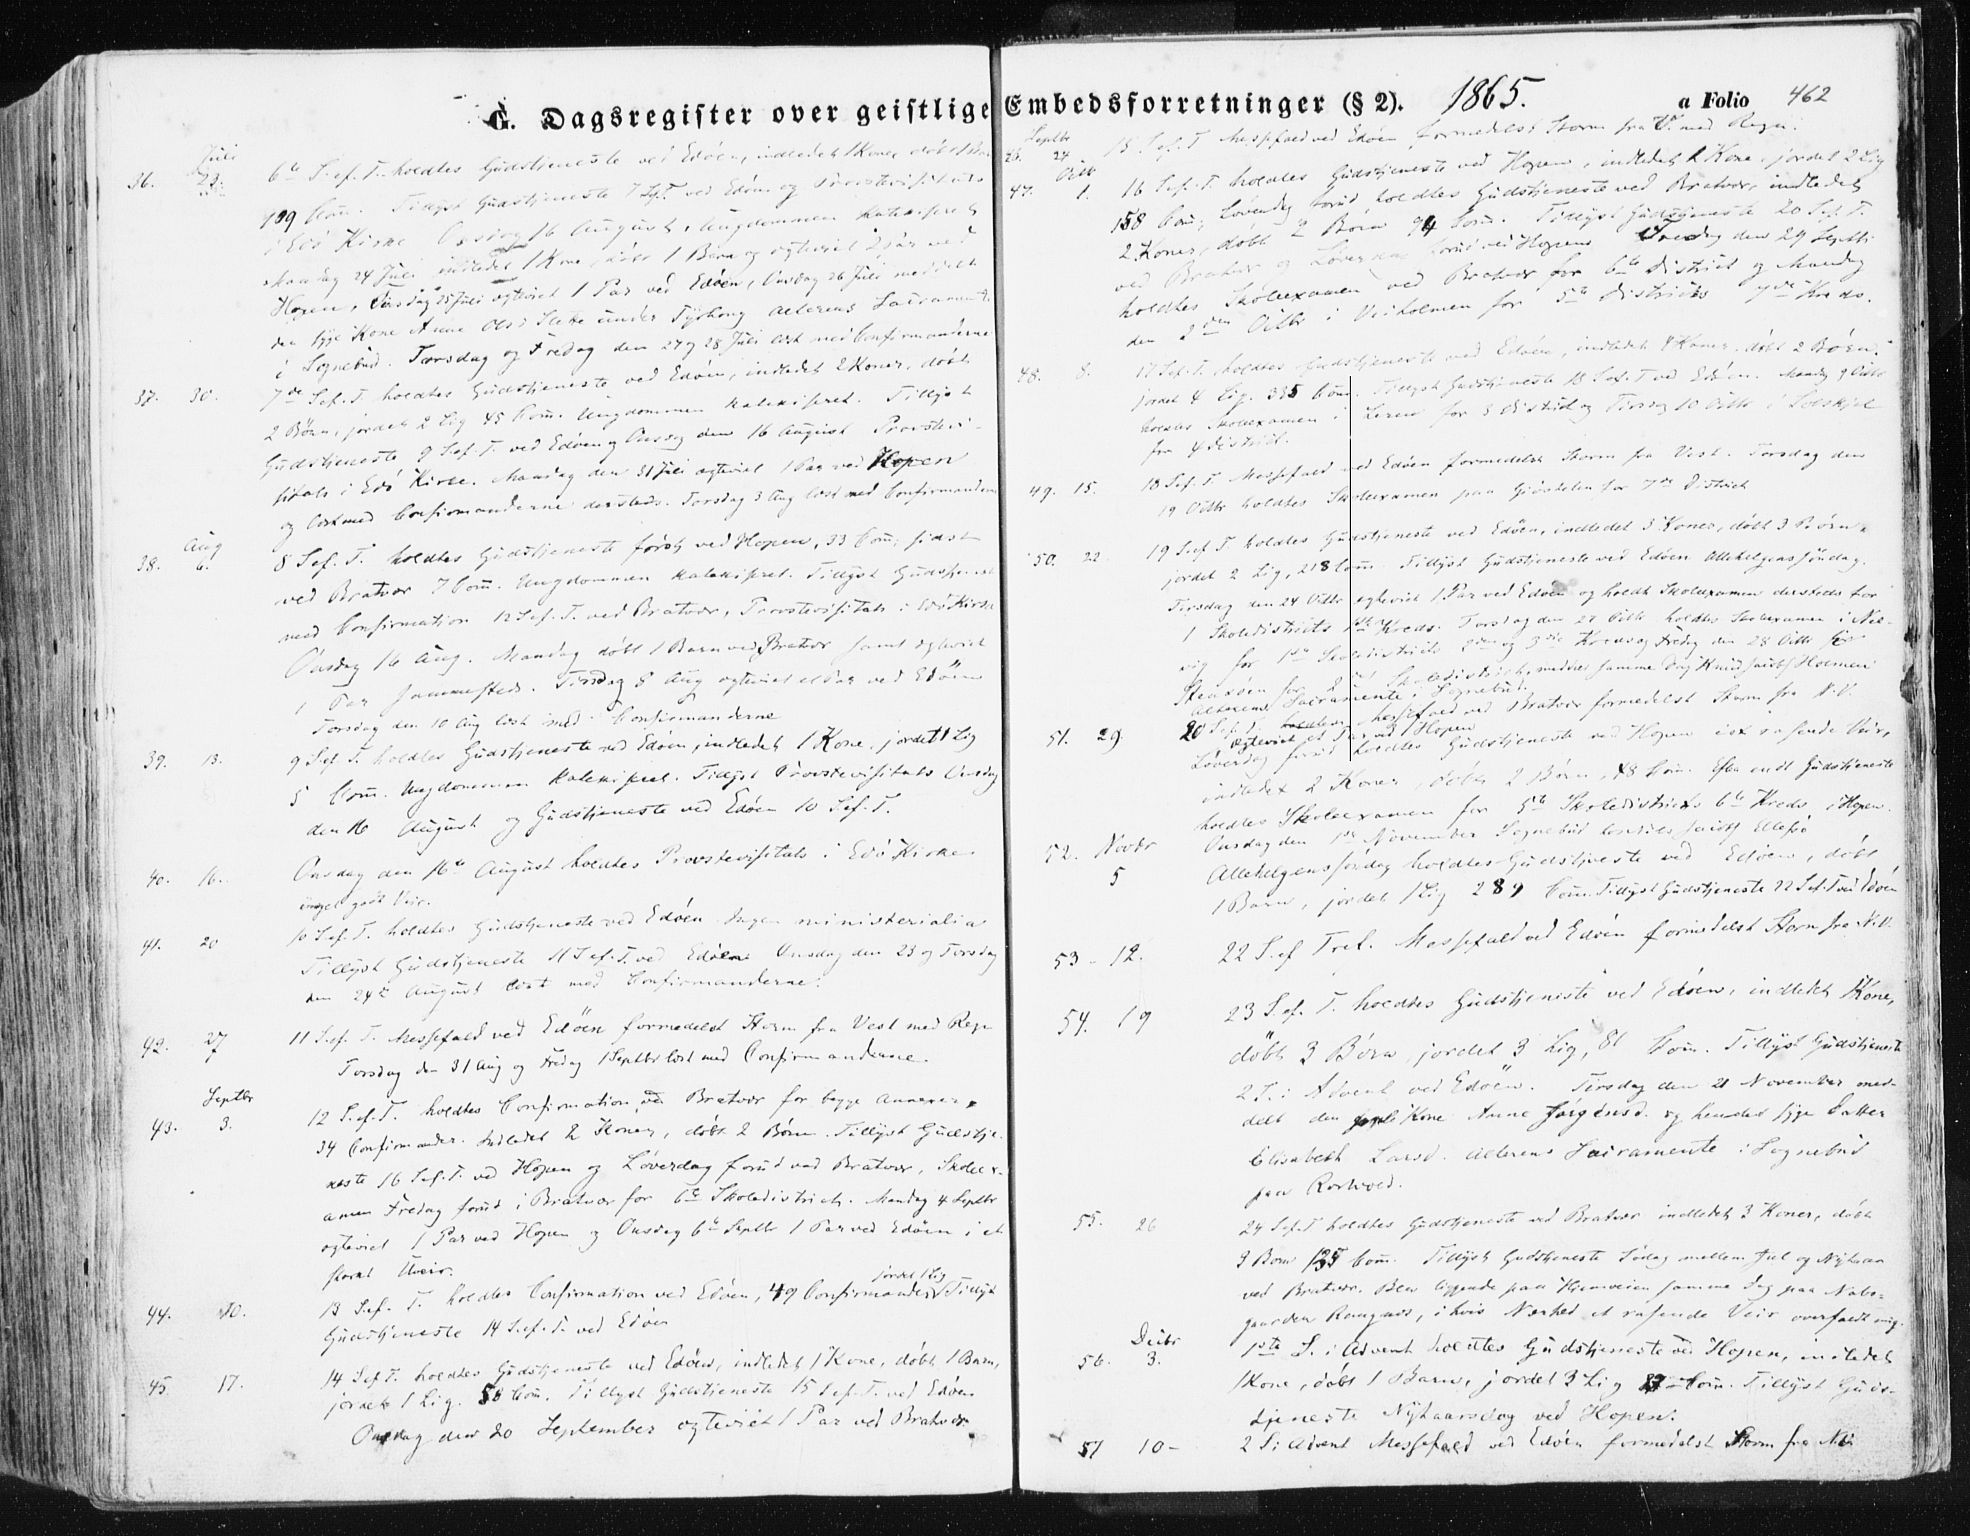 G. Dagsregister over geistlige Embedsforretninger (§ 2). 1865. a Folio 462
Juli
36. 23. 6te S. ef. T. holdtes Gudstjeneste ved Edöen, indledet 1 Kone, döbt 1 Barn
109 Com. Tillyst Gudstjeneste 7 S.e.T. ved Edöen og Provstevisitats
i Edö Kirke Onsdag 16 August, Ungdommen katekiseret
Mandag 24 Juli indledet 1 Kone, döbt 1 Barn og egteviet 2 Par ved
Hopen, Tirsdag 25 Juli egteviet 1 Par ved Edöen, Onsdag 26 Juli meddelt
den syge Kone Anne Olsd. under Alterens Sacramente
i Sognebud. Torsdag og Fredag den 27 og 28 Juli læst med Confirmanderne
37. 30. 7de S.ef.T. holdtes Gudstjeneste ved Edöen, indledet 2 Koner, döbt
2 Börn, jordet 2 Lig 45 Com. Ungdommen katekiseret. Tillyst
Gudstjeneste 9 S.ef.T. ved Edöen og Onsdag den 16 August Provstevi-
sitats i Edö Kirke. Mandag den 31 Juli egteviet 1 Par ved Hopen
og læst med Confirmanderne dersteds. Torsdag 3 Aug læst med Confirmanderne
Aug
38. 6. 8 S.ef.T. holdtes Gudstjeneste först ved Hopen, 33 Com; sidst
ved Bratvær 7 Com. Ungdommen katekiseret. Tillyst Gudstjeneste
med Confirmation 12 S.ef.T. ved Bratvær, Provstevisitats i Edö Kirke
Onsdag 16 Aug. Mandag döbt 1 Barn ved Bratvær samt egteviet
1 Par sammesteds. Tirsdag 8 Aug egteviet et Par ved Edöen
Torsdag den 10 Aug læst med Confirmanderne
39. 13. 9 S.ef.T. holdtes Gudstjeneste ved Edöen, indledet 1 Kone, jordet 1 Lig
5 Com. Ungdommen katekiseret. Tillyst Provstevisitats Onsdag
den 16 August og Gudstjeneste ved Edöen 10 S.ef.T.
40. 16. Onsdag den 16de August holdtes Provstevisitats i Edö Kirke
meget godt Veir.
41. 20 10 S.ef.T. holdtes Gudstjeneste ved Edöen. Ingen ministerialia
Tillyst Gudstjeneste 11 S.ef.T. ved Edöen. Onsdag den 23 og Torsdag
den 24de August læst med Confirmanderne.
42. 27 11 S.ef.T. Messefald ved Edöen formedelst Storm fra Vest med Regn
Torsdag den 31 Aug og Fredag 1 Septbr læst med Confirmanderne.
Septbr
43. 3. 12 S.ef.T. holdtes Confirmation ved Bratvær for begge Annexer,
34 Confirmander. Indledet 2 Koner, döbt 2 Börn. Tillyst Gudstje-
neste 16 S.ef.T. ved Hopen og Löverdag forud ved Bratvær, Skoleex-
amen Fredag forud i Bratvær for 6te Skoledistrict. Mandag 4 Septbr
egteviet 1 Par ved Hopen og Onsdag 6te Septbr 1 Par ved Edöen i et
stærkt Uveir.
44. 10. 13 S.ef.T. holdtes Confirmation ved Edöen, 49 Confirmander, jordet 1 Lig Tillyst
Gudstjeneste 14 S.ef.T. ved Edöen
45. 17. 14 S.ef.T. holdtes Gudstjeneste ved Edöen, indledet 1 Kone, döbt 1 Barn,
jordet 1 Lig. 58 Com. Tillyst Gudstjeneste 15 S.ef.T. ved Edöen
Onsdag den 20 September egteviet 1 Par ved Bratvær.
Septbr
46. 24 15 S.ef.T. Messefald ved Edöen formedelst Storm fra V. med Regn.
Octbr
47. 1. 16 S.ef.T. holdtes Gudstjeneste ved Hopen, indledet 1 Kone, jordet 2 Lig
158 Com; Löverdag forud holdtes Gudstjeneste ved Bratvær, indledet
2 Koner, döbt 2 Börn 94 Com. Tillyst Gudstjeneste 20 S.ef.T.
ved Bratvær og Löverdag forud ved Hopen Fredag den 29 Septbr
holdtes Skoleexamen ved Bratvær for 6te District og Mandag
den 2den Octbr i Veiholmen for 5te Districts Kreds.
48. 8. 17 S.ef.T. holdtes Gudstjeneste ved Edöen, indledet 4 Koner, döbt 2 Börn,
jordet 4 Lig. 335 Com. Tillyst Gudstjeneste 18 S.ef.T. ved Edöen. Mandag 9 Octbr
holdtes Skoleexamen i Leren for 3 District og Tirsdag 10 Octbr i Solskjel
for 4 District.
49. 15. 18 S.ef.T. Messefald ved Edöen formedelst Storm fra Vest. Torsdag den
19 Octbr holdtes Skoleexamen paa for 7de District
50. 22. 19 S.ef.T. holdtes Gudstjeneste ved Edöen, indledet 3 Koner, döbt 3 Börn,
jordet 2 Lig, 218 Com. Tillyst Gudstjeneste ved Edöen Allehelgenssöndag.
Tirsdag den 24 Octbr egteviet 1 Par ved Edöen og holdt Skoleexamen dersteds for
1 Skoledistricts 1ste Kreds. Torsdag den 27 Octbr holdtes Skoleexamen i
vig for 1ste Skoledistricts 2den og 3die Kreds og Fredag den 28 Octbr
for 2 Skoledistrict, meddelt samme Dag Holmen
Alterens Sacramente i Sognebud.
51. 29. 20 S.ef.T. Messefald ved Bratvær formedelst Storm fra N.V.
egteviet et Par ved Hopen
Löverdag forud holdtes Gudstjeneste ved Hopen i et rasende Veir,
indledet 2 Koner, döbt 2 Börn, 48 Com. Efter endt Gudstjeneste
holdtes Skoleexamen for 5te Skoledistricts 6te Kreds i Hopen.
52. Novbr Onsdag den 1ste November Sognebud
5 Allehelgenssöndag holdtes Gudstjeneste ved Edöen, döbt
1 Barn, jordet 1 Lig 289 Com. Tillyst Gudstjeneste 22 S.ef.T. ved Edöen
53 - 12. 22 S.ef Tref. Messefald ved Edöen formedelst Storm fra N.V.
54. 19 23 S.ef.T. holdtes Gudstjeneste ved Edöen, indledet 1 Kone,
döbt 3 Börn, jordet 3 Lig, 81 Com. Tillyst Gudstjeneste
2 S. i Advent ved Edöen. Tirsdag den 21 November med-
delt den Kone Anne Jörgensd. og hendes syge Datter
Elisabeth Larsd. Alterens Sacramente i Sognebud
paa
55. 26 24 S.ef.T holdtes Gudstjeneste ved Bratvær indledet 3 Koner, döbt
3 Börn 125 Com. Tillyst Gudstjeneste Södag mellem Jul og Nytaar
ved Bratvær. Blev liggende paa Hjemveien samme Dag paa Nabo-
gaarden i hvis Nærhed et rasende Veir overfaldt mig.
Decbr
56. 3. 1ste S. i Advent holdtes Gudstjeneste ved Hopen, indledet
1 Kone, döbt 1 Barn, jordet 3 Lig 27 Com. Tillyst Guds-
tjeneste Nytaarsdag ved Hopen.
57 10 - 2 S. i Advent Messefald ved Edöen formedelst Storm fra